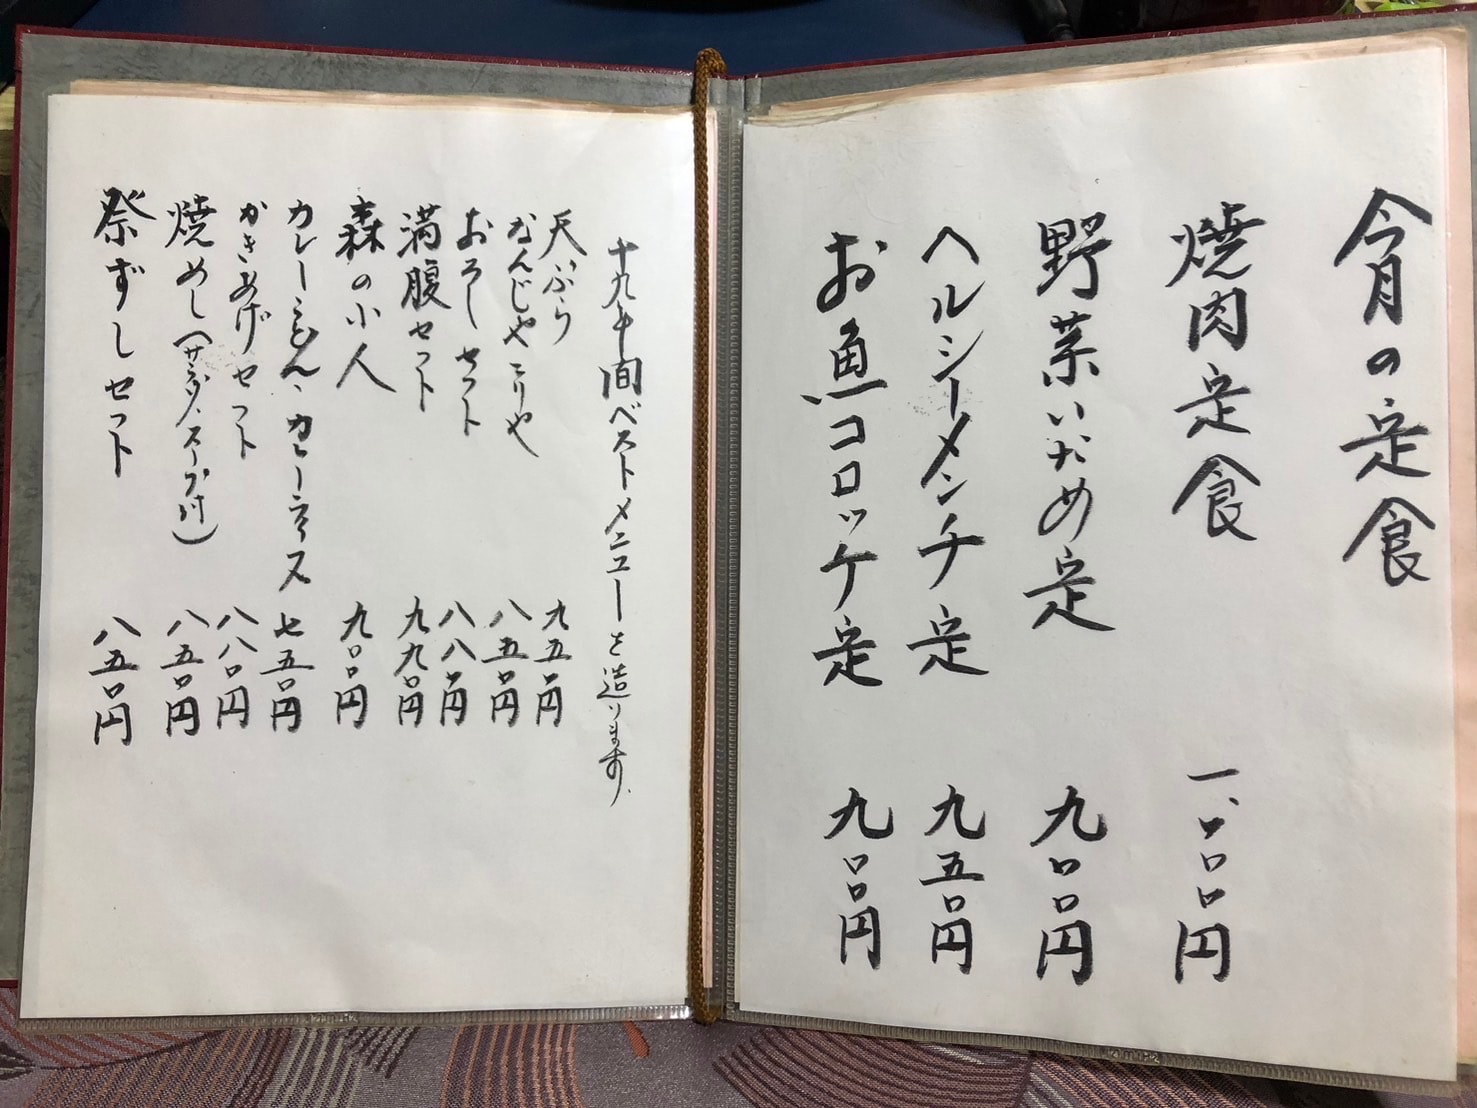 今月の定食
焼肉定食 一、〇〇〇円
野菜いため定 九〇〇円
ヘルシーメンチ定 九五〇円
お魚コロッケ定 九〇〇円
十九年間ベストメニューを造ります。
天ぷら 九五〇円
なんじゃこりゃ 八五〇円
おろしセット 八八〇円
満腹セット 九九〇円
森の小人 九〇〇円
カレーうどん、カレーライス 七五〇円
かきあげセット 八八〇円
焼めし(サラダ、スープ付) 八五〇円
祭ずしセット 八五〇円